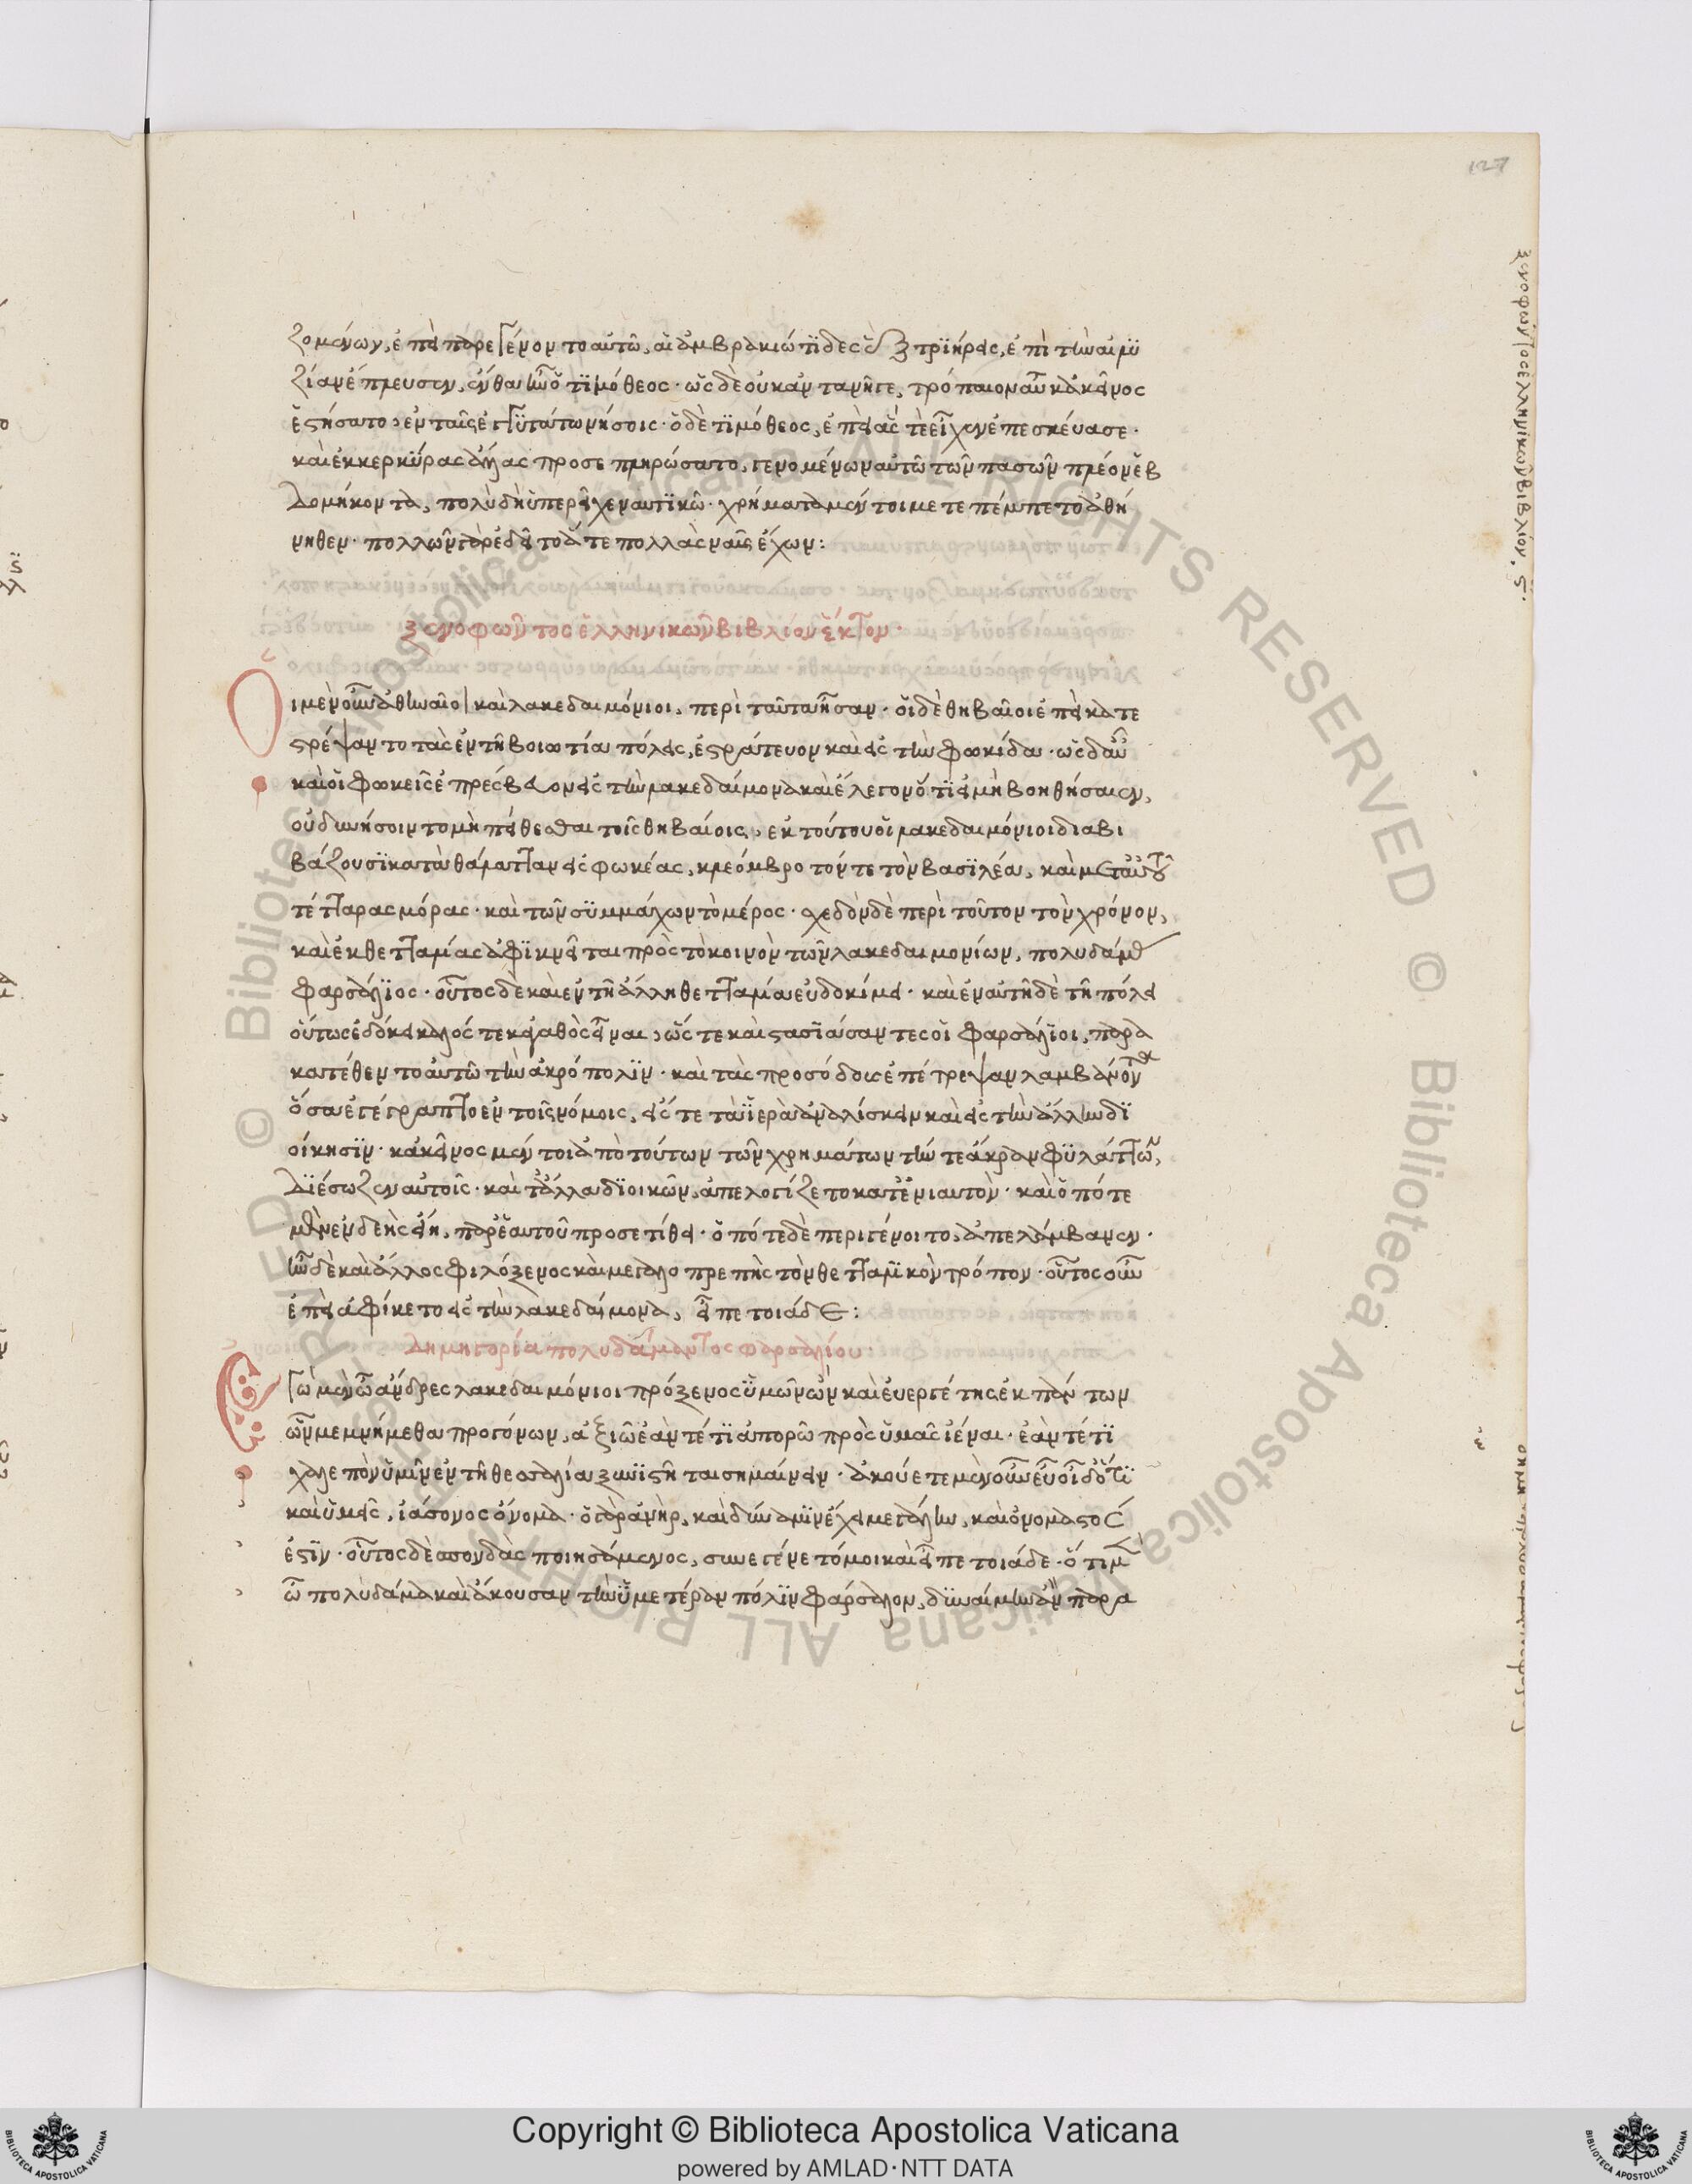 127
ζομένων, ἐπεὶ παρεγένοντο αὐτῶ, αἱ ἀμβρακιώτιδες ἓξ τριήρεις, ἐπὶ τὴν ἀλυ
ζίαν ἔπλευσεν, ἔνθα ἦν ὁ τιμόθεος · ὡς δὲ οὐκ ἀντανῆγε, τρόπαιον αὖ κἀκεῖνος
ἐστήσατο ἐν ταῖς ἐγγυτάτω νήσοις · ὁ δὲ τιμόθεος, ἐπεὶ ἅς τε εἶχεν ἐπεσκεύασε ·
καὶ ἐκ κερκύρας ἄλλας προσεπληρώσατο, γενομένων αὐτῶ τῶν πασῶν πλέον ἑβ
δομήκοντα, πολὺ δὴ ὑπερεῖχε ναυτικῶ · χρήματα μέντοι μετεπέμπετο ἀθή
νηθεν · πολλῶν γὰρ ἐδεῖτο ἅτε πολλὰς ναῦς ἔχων :
ξενοφῶντος ἑλληνικῶν βιβλίον ἕκτον ·
Οἱ μὲν οὖν ἀθηναῖοι καὶ λακεδαιμόνιοι, περὶ ταῦτα ἦσαν · οἱ δὲ θηβαῖοι ἐπεὶ κατε
στρέψαντο τὰς ἐν τῆ βοιωτία πόλεις, ἐστράτευον καὶ εἰς τὴν φωκίδα · ὡς δ αὖ
καὶ οἱ φωκεῖς ἐπρέσβευον εἰς τὴν λακεδαίμονα καὶ ἔλεγον ὅτι εἰ μὴ βοηθήσαιεν,
οὐ δυνήσοιντο μὴ πείθεσθαι τοῖς θηβαίοις, ἐκ τούτου οἱ λακεδαιμόνιοι διαβι
βάζουσι κατὰ θάλατταν εἰς φωκέας, κλεόμβροτόν τε τὸν βασιλέα, καὶ μετ αὐτοῦ
τέτταρας μόρας · καὶ τῶν συμμάχων τὸ μέρος · σχεδὸν δὲ περὶ τοῦτον τὸν χρόνον,
καὶ ἐκ θετταλίας ἀφικνεῖται πρὸς τὸ κοινὸν τῶν λακεδαιμονίων, πολυδάμας
φαρσάλιος · οὗτος δὲ καὶ ἐν τῆ ἄλλη θετταλία εὐδοκίμει · καὶ ἐν αὐτῆ δὲ τῆ πόλει
οὕτως ἐδόκει καλός τε κἀγαθὸς εἶναι, ὥστε καὶ στασιάσαντες οἱ φαρσάλιοι, παρα
κατέθεντο αὐτῶ τὴν ἀκρόπολιν · καὶ τὰς προσόδους ἐπέτρεψαν λαμβάνοντα
ὅσα ἐγέγραπτο ἐν τοῖς νόμοις, εἴς τε τὰ ἱερὰ ἀναλίσκειν καὶ εἰς τὴν ἄλλην δι
οίκησιν · κἀκεῖνος μέντοι ἀπὸ τούτων τῶν χρημάτων τήν τε ἄκραν φυλάττων,
διέσωζεν αὐτοῖς · καὶ τἄλλα διοικῶν, ἀπελογίζετο κατ ἐνιαυτὸν · καὶ ὁπότε
μὲν ἐνδεὴς εἴη, παρ ἑαυτοῦ προσετίθει · ὁπότε δὲ περιγένοιτο, ἀπελάμβανεν ·
ἦν δὲ καὶ ἄλλως φιλόξενος καὶ μεγαλοπρεπὴς τὸν θετταλικὸν τρόπον · οὗτος οὖν
ἐπεὶ ἀφίκετο εἰς τὴν λακεδαίμονα, εἶπε τοιάδε :
δημηγορία πολυδάμαντος φαρσαλίου ·
Ἐγὼ μὲν ὦ ἄνδρες λακεδαιμόνιοι πρόξενος ὑμῶν ὢν καὶ εὐεργέτης ἐκ πάντων
ὧν μεμνήμεθα προγόνων, ἀξιῶ ἐάν τέ τι ἀπορῶ πρὸς ὑμᾶς ἰέναι · ἐάν τέ τι
χαλεπὸν ὑμῖν ἐν τῆ θεσσαλία ξυνιστῆται σημαίνειν · ἀκούετε μὲν οὖν εὖ οἶδ ὅτι
καὶ ὑμεῖς, ἰάσονος ὄνομα · ὁ γὰρ ἀνὴρ, καὶ δύναμιν ἔχει μεγάλην, καὶ ὀνομαστός
ἐστιν · οὗτος δὲ σπονδὰς ποιησάμενος, συνεγένετό μοι καὶ εἶπε τοιάδε · ὅτι μὲν
ὦ πολυδάμα καὶ ἄκουσαν τὴν ὑμετέραν πόλιν φάρσαλον, δυναίμην ἂν παρα
ξενοφῶντος ἑλληνικῶν βιβλίον, ϛ ·
Copyright © Biblioteca Apostolica Vaticana
powered by AMLAD·NTT DATA
© Biblioteca Apostolica Vaticana ALL RIGHTS RESERVED
© Biblioteca Apostolica Vaticana ALL RIGHTS RESERVED
BIBLIOTECA APOSTOLICA VATICANA
BIBLIOTECA APOSTOLICA VATICANA